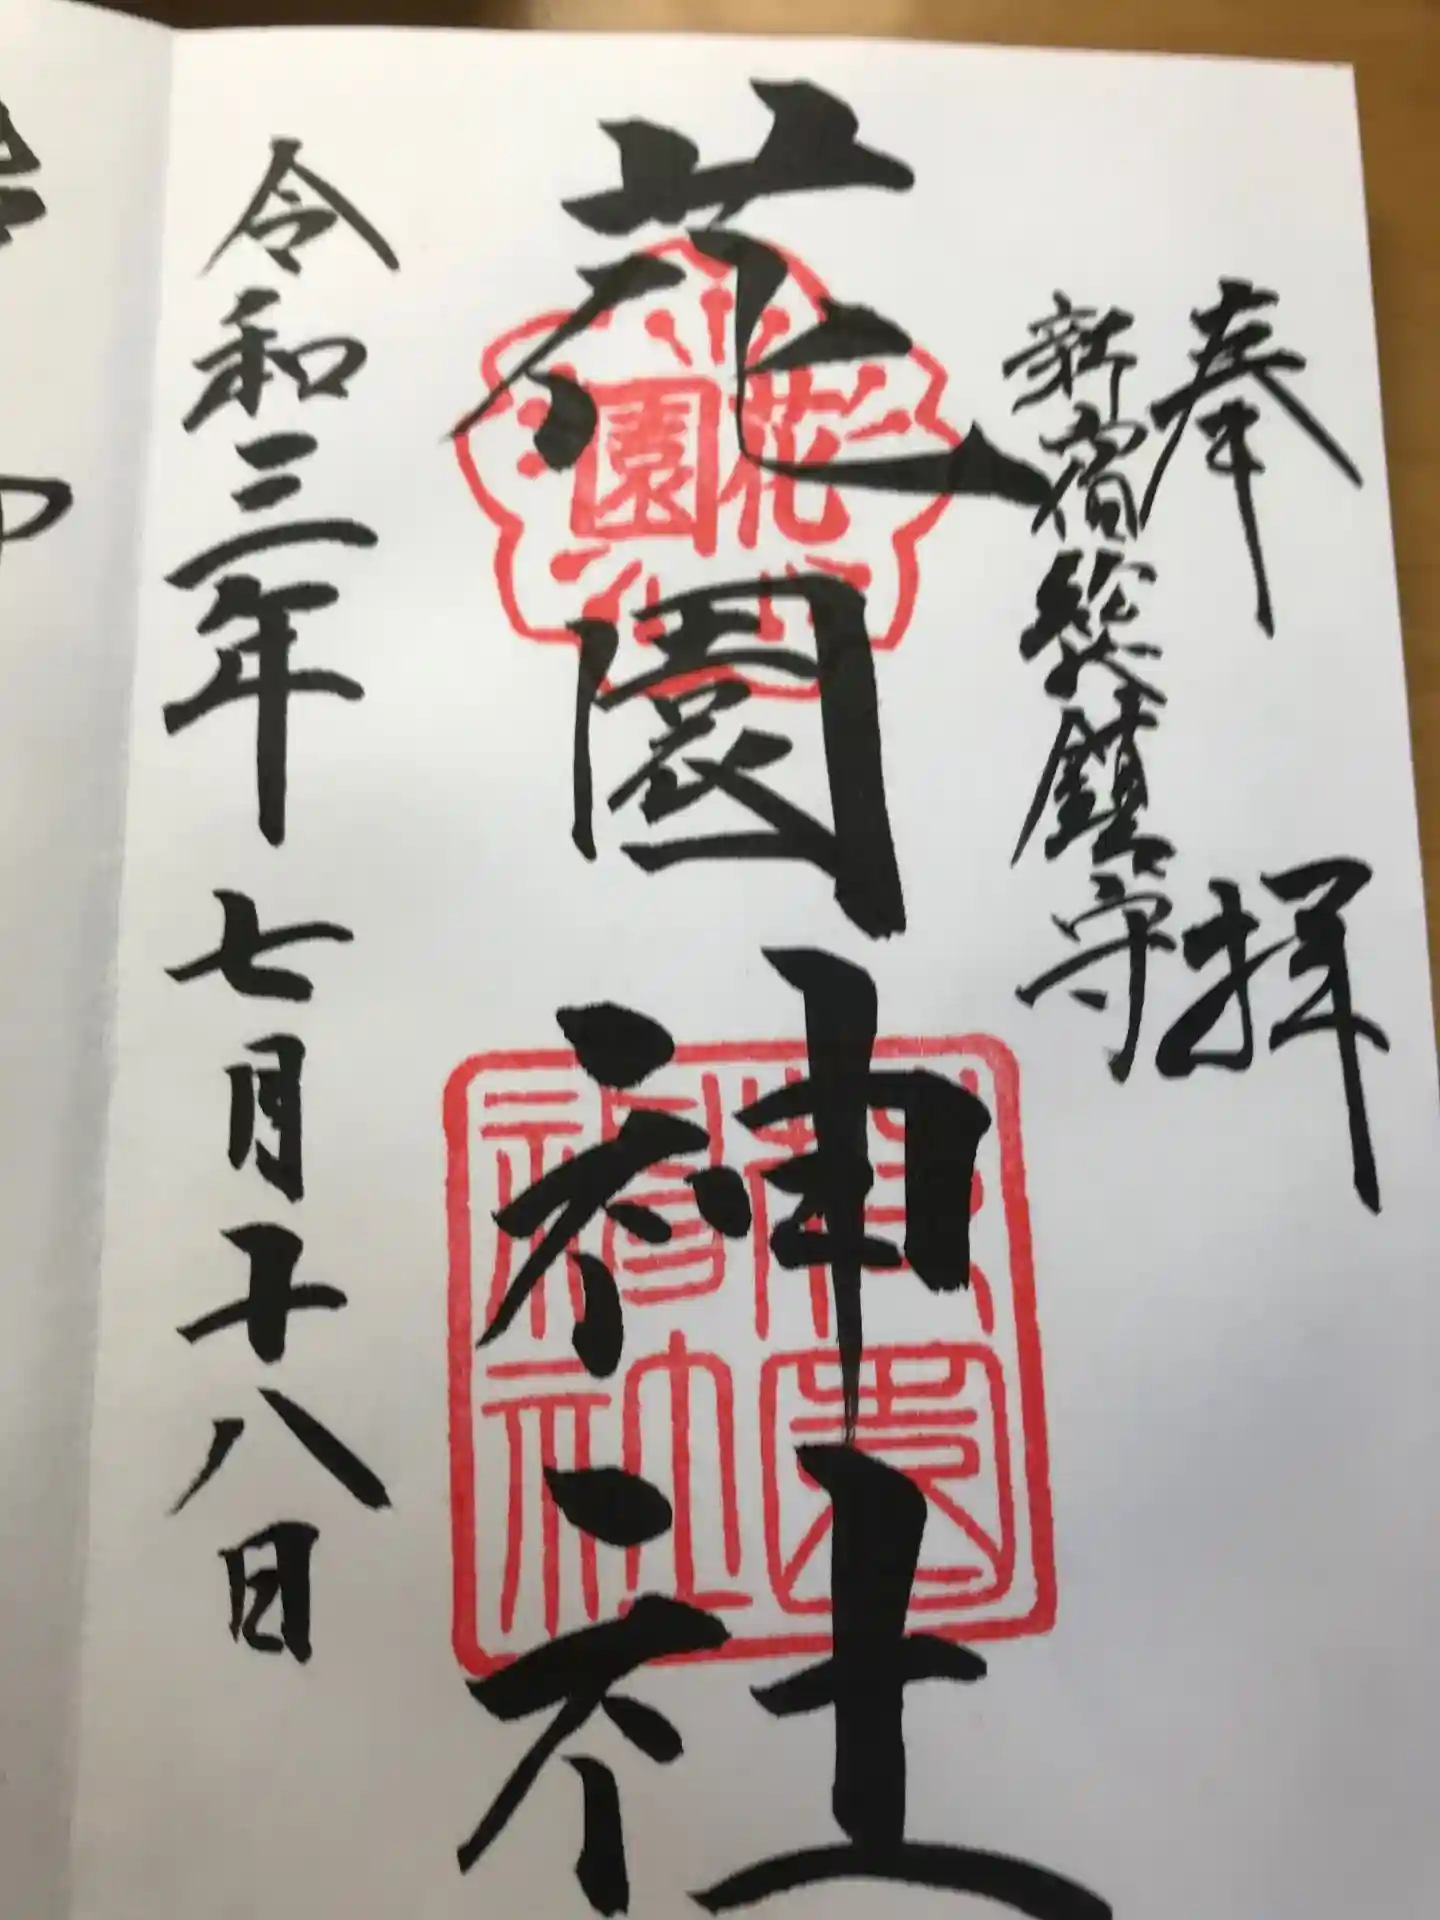 奉拝
新宿総鎮守
花園神社
花園
花園神社
令和三年七月十八日